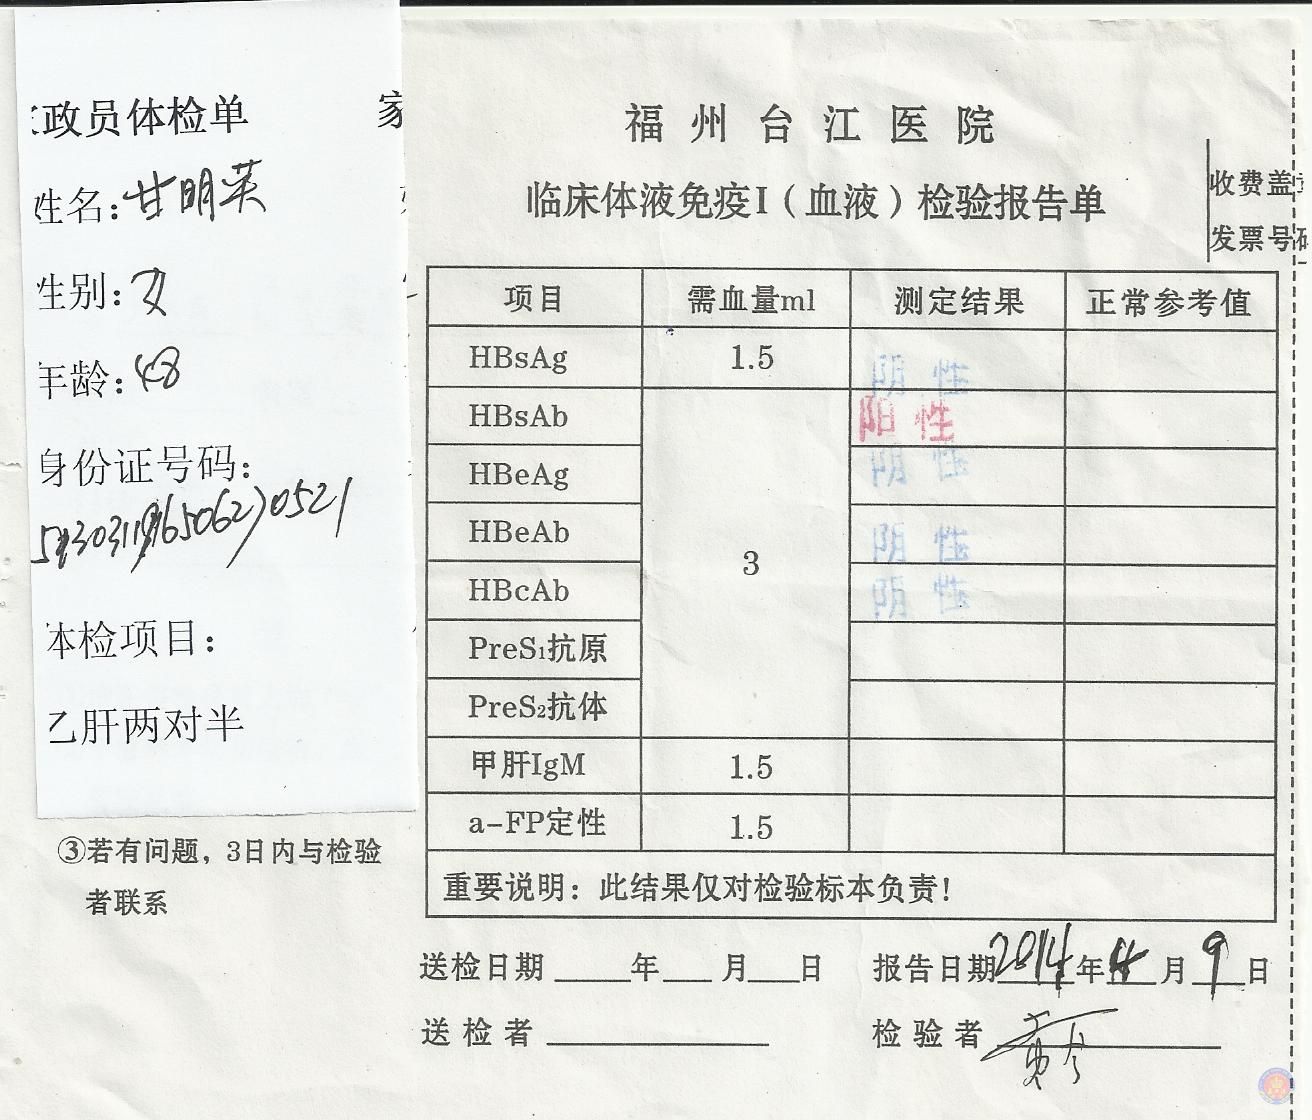 政员体检单 家
姓名:甘明英
性别:女
年龄:48
身份证号码:
体检项目:
乙肝两对半
③若有问题，3日内与检验
者联系
福州台江医院
临床体液免疫I（血液）检验报告单
收费盖
发票号码
项目 需血量ml 测定结果 正常参考值
HBsAg 1.5 阴性
HBsAb 阳性
HBeAg 阴性
HBeAb 阴性
3
HBcAb 阴性
PreS₁抗原
PreS₂抗体
甲肝IgM 1.5
a-FP定性 1.5
重要说明：此结果仅对检验标本负责！
送检日期 年 月 日 报告日期2014年4月9日
送检者 检验者